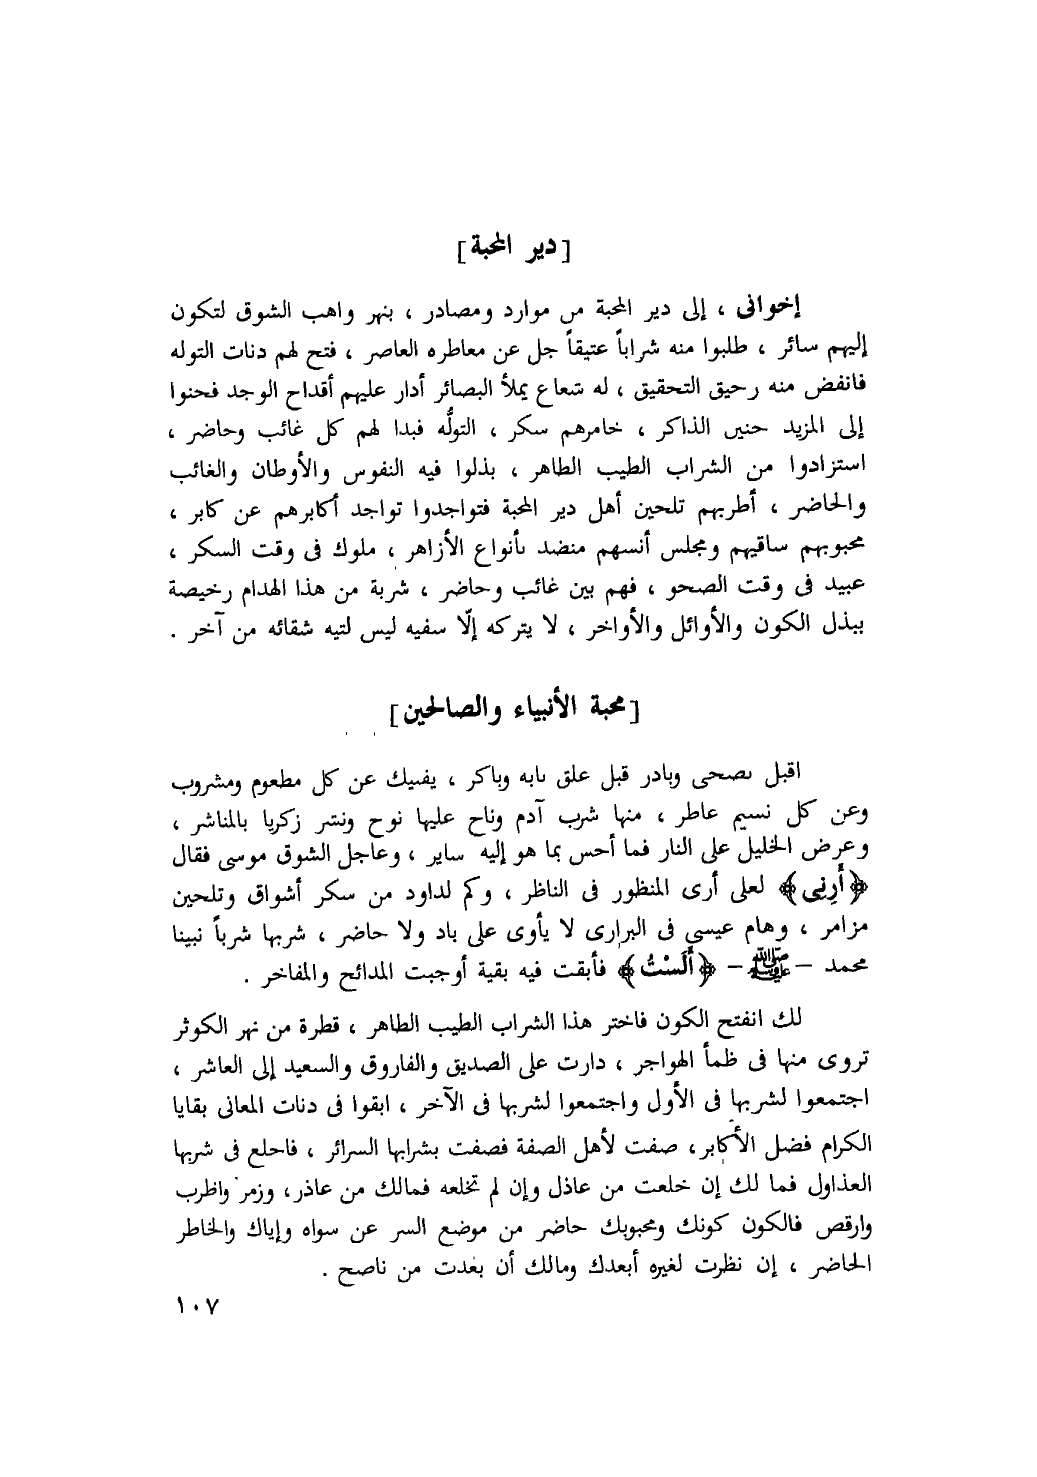 [دير المحبة]
إخوانى ، إلى دير المحبة من موارد ومصادر ، بنهر واهب الشوق لتكون
إليهم سائر ، طلبوا منه شراباً عتيقاً جل عن معاطره العاصر ، فتح لهم دنات التوله
فانفض منه رحيق التحقيق ، له شعاع يملأ البصائر أدار عليهم أقداح الوجد فحنوا
إلى المزيد حنين الذاكر ، خامرهم سكر ، التولُّه فبدا لهم كل غائب وحاضر ،
استزادوا من الشراب الطيب الطاهر ، بذلوا فيه النفوس والأوطان والغائب
والحاضر ، أطربهم تلحين أهل دير المحبة فتواجدوا تواجد أكابرهم عن كابر ،
محبوبهم ساقيهم ومجلس أنسهم منضد بأنواع الأزاهر ، ملوك فى وقت السكر ،
عبيد فى وقت الصحو ، فهم بين غائب وحاضر ، شربة من هذا الهدام رخيصة
ببذل الكون والأوائل والأواخر ، لا يتركه إلّا سفيه ليس لتيه شقائه من آخر .
[محبة الأنبياء والصالحين]
اقبل نصحى وبادر قبل علق بابه وباكر ، يفنيك عن كل مطعوم ومشروب
وعن كل نسيم عاطر ، منها شرب آدم وناح عليها نوح ونشر زكريا بالمناشر ،
وعرض الخليل على النار فما أحس بما هو إليه ساير ، وعاجل الشوق موسى فقال
﴿أَرِنِى﴾ لعلى أرى المنظور فى الناظر ، وكم لداود من سكر أشواق وتلحين
مزامر ، وهام عيسى فى البرارى لا يأوى على باد ولا حاضر ، شربها شرباً نبينا
محمد - ﷺ - ﴿أَلَسْتُ﴾ فأبقت فيه بقية أوجبت المدائح والمفاخر .
لك انفتح الكون فاختر هذا الشراب الطيب الطاهر ، قطرة من نهر الكوثر
تروى منها فى ظمأ الهواجر ، دارت على الصديق والفاروق والسعيد إلى العاشر ،
اجتمعوا لشربها فى الأول واجتمعوا لشربها فى الآخر ، ابقوا فى دنات المعانى بقايا
الكرام فضل الأكابر، صفت لأهل الصفة فصفت بشرابها السرائر ، فاحلع فى شربها
العذاول فما لك إن خلعت من عاذل وإن لم تخلعه فمالك من عاذر، وزمر واظرب
وارقص فالكون كونك ومحبوبك حاضر من موضع السر عن سواه وإياك والخاطر
الحاضر ، إن نظرت لغيره أبعدك ومالك أن بعدت من ناصح .
١٠٧